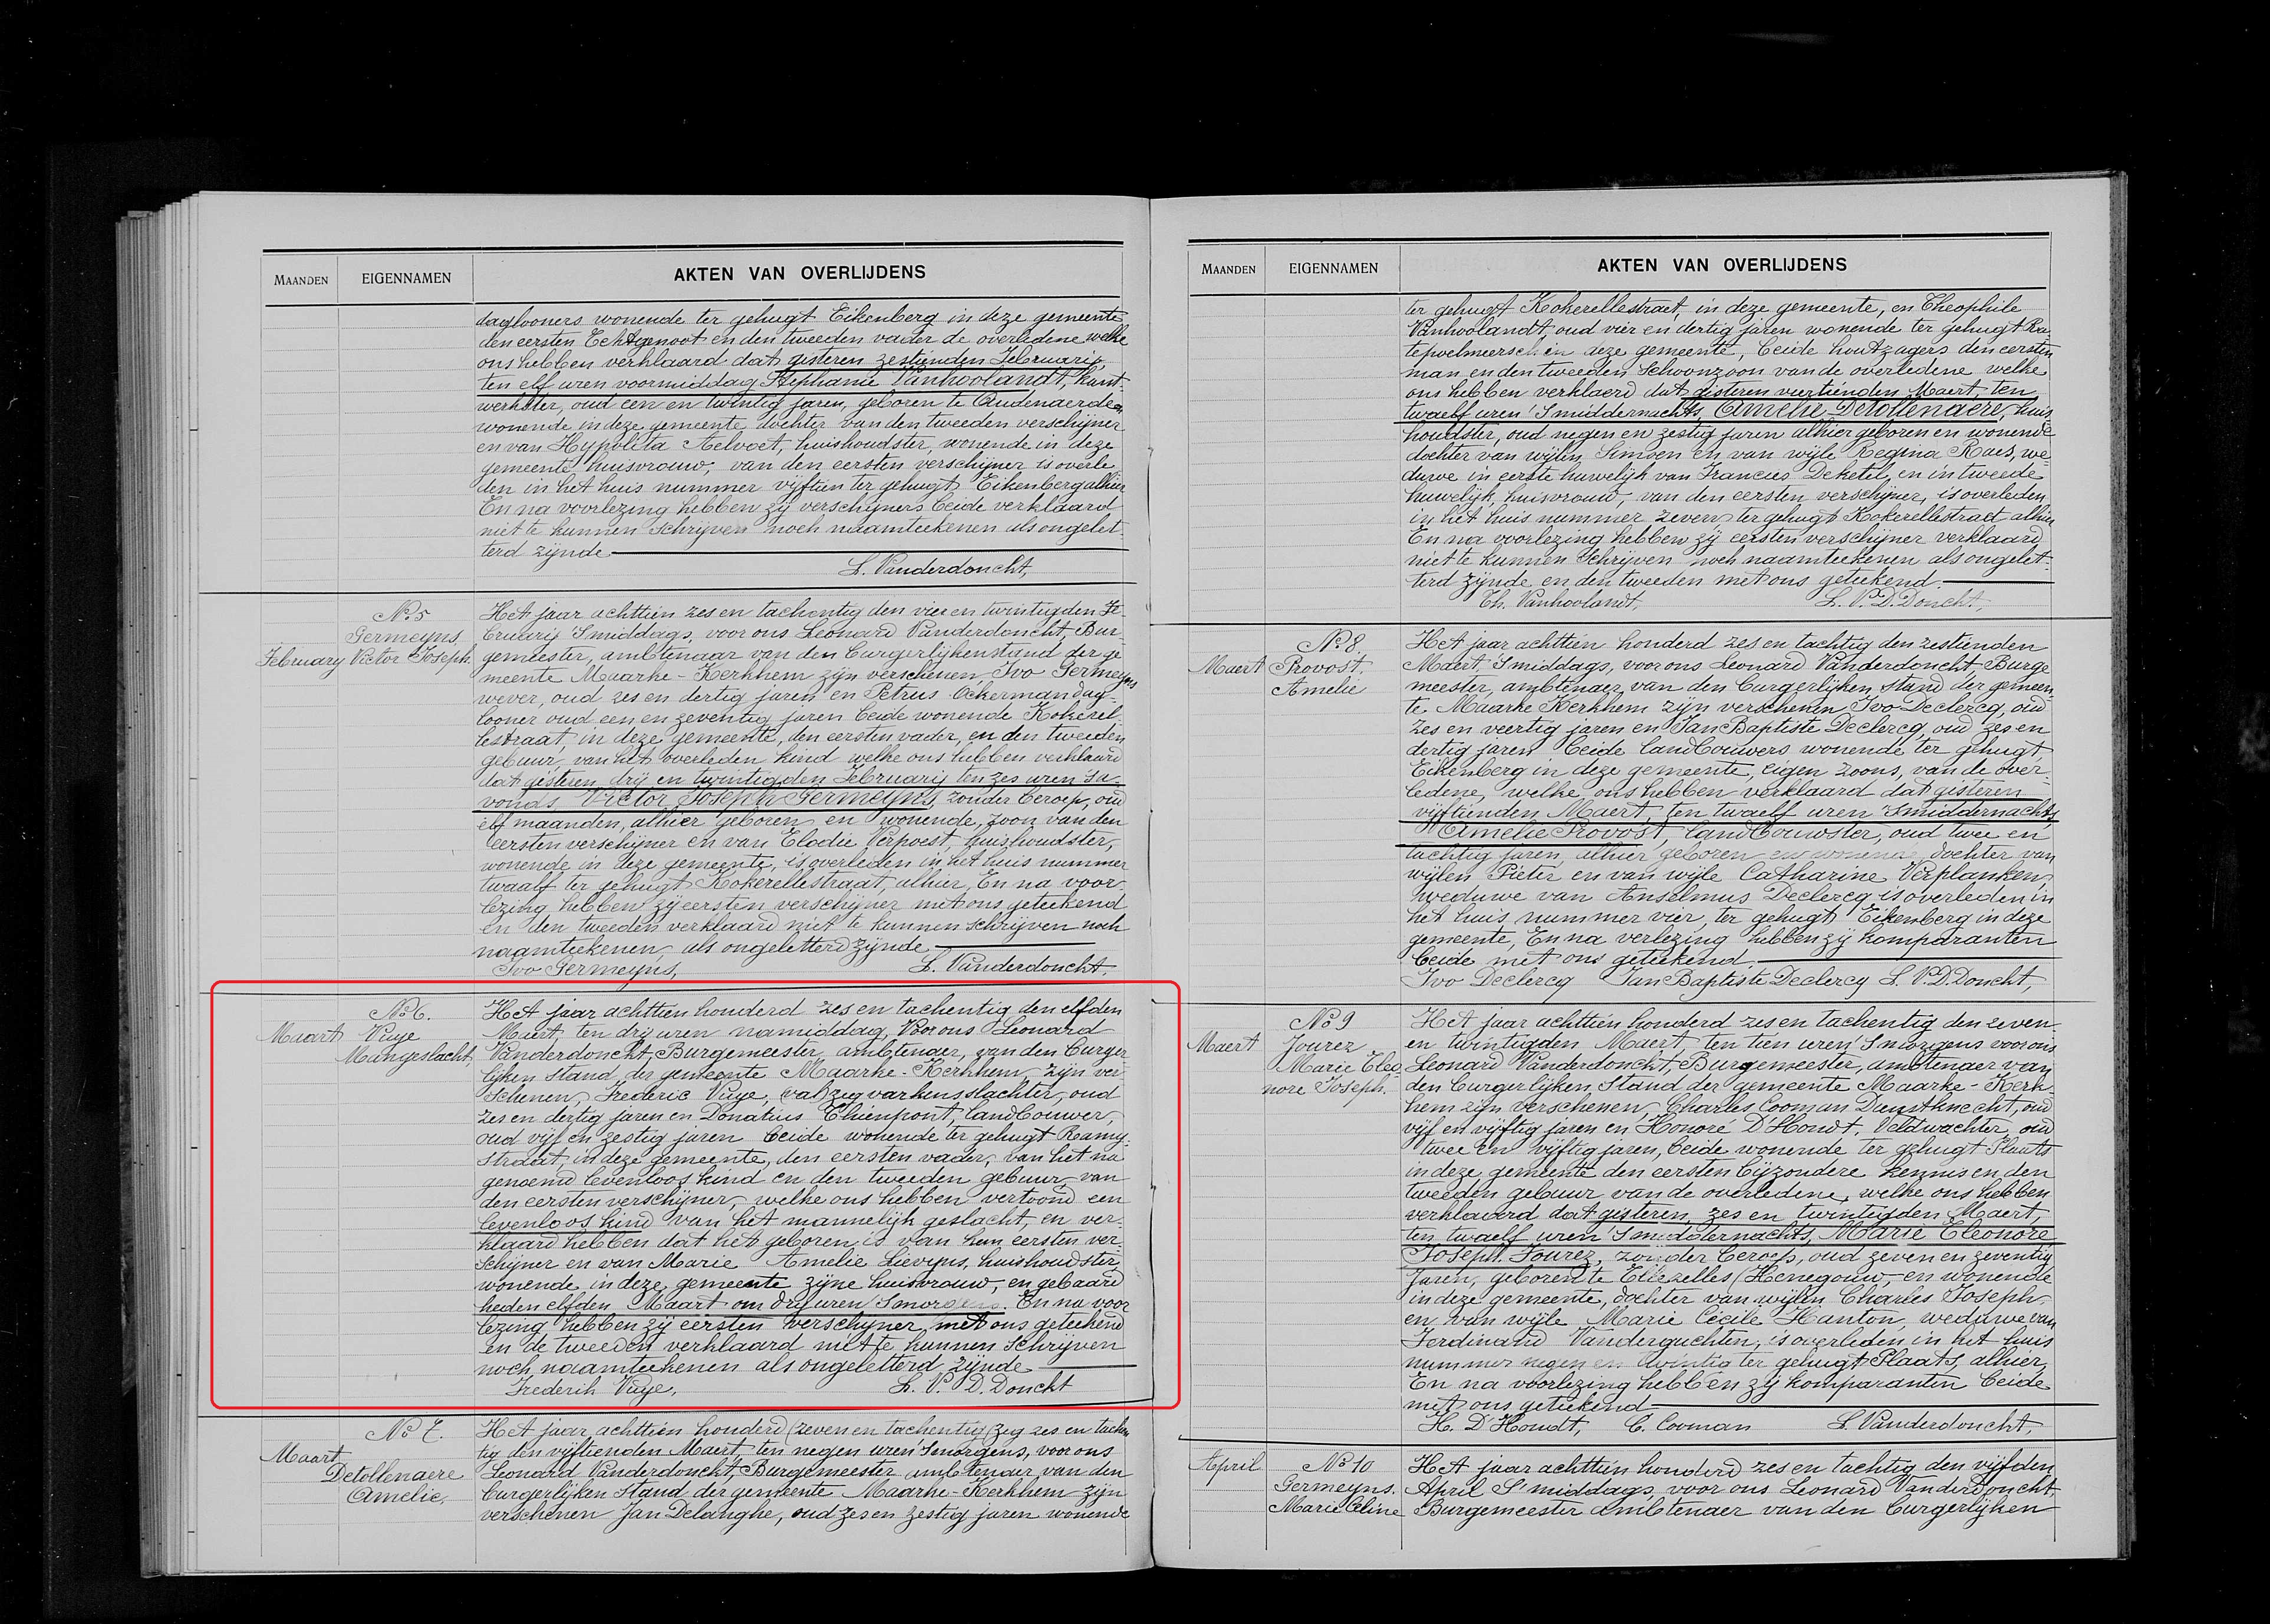 MAANDEN EIGENNAMEN AKTEN VAN OVERLIJDENS
daglooners wonende ter gehugt Eikenberg in deze gemeente
den eersten Echtgenoot en den tweeden vader de overledene welke
ons hebben verklaard dat gisteren zestienden Februarij,
ten elf uren voormiddag Stephanie Vanhoolandt, kant-
werkster, oud een en twintig jaren, geboren te Audenaerde en
wonende in deze gemeente, dochter van den tweeden verschijner
en van Hypolita Aelvoet, huishoudster, wonende in deze
gemeente huisvrouw, van den eersten verschijner is overle
den in het huis nummer vijftien ter gehugt Eikenberg alhier
En na voorlezing hebben zij verschijners beide verklaard
niet te kunnen Schrijven noch naamteekenen als ongelet-
terd zijnde
L. Vanderdoncht,
No 5
Germeyns
February Victor Joseph.
Het jaar achttien zes en tachentig den vier en twintigden Fe-
bruarij 'Smiddags, voor ons Leonard Vanderdoncht, Bur-
gemeester, ambtenaar van den burgerlijkenstand der ge
meente Maarke-Kerkhem zijn verschenen, Ivo Germeyns
wever, oud zes en dertig jaren en Petrus Ockerman dag-
looner oud een en zeventig jaren beide wonende Kokerel-
lestraat, in deze gemeente, den eersten vader, en den tweeden
gebuur, van het overleden kind welke ons hebben verklaard
dat gisteren, drij en twintigden Februarij ten zes uren Sa-
vonds, Victor Joseph Germeyns, zonder beroep, oud
elf maanden, alhier geboren en wonende, zoon van den
eersten verschijner en van Elodie Verpoest, huishoudster,
wonende in deze gemeente, is overleden in het huis nummer
twaalf ter gehugt Kokerellestraat, alhier, En na voor-
lezing hebben zij eersten verschijner met ons geteekend
en den tweeden verklaard niet te kunnen schrijven noch
naamteekenen, als ongeletterd zijnde
Ivo Germeyns, L. Vanderdoncht,
No 6.
Maart Vuye
Mangeslacht,
Het jaar achttien honderd zes en tachentig den elfden
Maert, ten drij uren namiddag, Voor ons Leonard
Vanderdoncht, Burgemeester, ambtenaer, van den burger
lijken stand der gemeente Maarke-Kerkhem, zijn ver
schenen, Frederic Vuye, (val) zeg varkensslachter, oud
zes en dertig jaren en Donatius Thienpont, landbouwer,
oud vijf en zestig jaren beide wonende ter gehugt Ramy-
straat, in deze gemeente, den eersten vader, van het na
genoemd levenloos kind en den tweeden gebuur, van
den eersten verschijner, welke ons hebben vertoond een
levenloos kind van het mannelijk geslacht, en ver-
klaard hebben dat het geboren is van hem eersten ver-
schijner en van Marie Amelie Lievyns, huishoudster,
wonende in deze gemeente zijne huisvrouw, en gebaard
heden elfden Maart om drij uren 'Smorgens. En na voor
lezing hebben zij eersten verschijner met ons geteekend
en de tweeden verklaard niet te kunnen schrijven
noch naamteekenen als ongeletterd zijnde
Frederik Vuye, L. V. D. Doncht
No 7.
Maart
Detollenaere
Amelie,
Het jaar achttien honderd (zeven en tachentig (zeg zes en tachen
tig den vijftienden Maert, ten negen uren 'Smorgens, voor ons
Leonard Vanderdoncht, Burgemeester ambtenaer van den
burgerlijken stand der gemeente Maarke-Kerkhem zijn
verschenen Jan Delanghe, oud zes en zestig jaren wonende
MAANDEN EIGENNAMEN AKTEN VAN OVERLIJDENS
ter gehugt Kokerellestraet, in deze gemeente, en Theophile
Vanhoolandt, oud vier en dertig jaren wonende ter gehugt Ra-
tepoelmeersch in deze gemeente, beide houtzagers den eersten
man en den tweeden Schoonzoon van de overledene welke
ons hebben verklaerd dat gisteren viertienden Maert, ten
twaelf uren 'Smiddernachts, Amelie Detollenaere, huis-
houdster, oud negen en zestig jaren alhier geboren en wonende
dochter van wijlen Simoen en van wijle Regina Raes, we-
duwe in eerste huwelijk van Francies Deketel, en in tweede
huwelijk huisvrouw, van den eersten verschijner, is overleden
in het huis nummer zeven, ter gehugt Kokerellestraet alhier
En na voorlezing hebben zij eersten verschijner verklaard
niet te kunnen Schrijven noch naamteekenen als ongelet-
terd zijnde en den tweeden met ons geteekend.
Th. Vanhoolandt, L. V. D. Doncht,
No 8.
Maert Provost.
Amelie
Het jaar achttien honderd zes en tachtig den zestienden
Maert, 'Smiddags, voor ons Leonard Vanderdoncht Burge
meester, ambtenaer van den burgerlijken stand der gemeen-
te Maarke Kerkhem zijn verschenen, Ivo Declercq, oud
zes en veertig jaren en Jan Baptiste Declercq, oud zes en
dertig jaren beide landbouwers wonende ter gehugt,
Eikenberg in deze gemeente, eigen zoons, van de over-
ledene, welke ons hebben verklaard dat gisteren
vijftienden Maert, ten twaelf uren 'Smiddernachts
Amelie Provost, landbouwster, oud twee en
tachtig jaren, alhier geboren en wonende dochter van
wijlen Pieter en van wijle Catharine Verplanken,
weduwe van Anselmus Declercq is overleden in
het huis nummer vier, ter gehugt Eikenberg in deze
gemeente, En na verlezing hebben zij komparanten
beide met ons geteekend
Ivo Declercq Jan Baptiste Declercq L. V. D. Doncht,
No 9
Maert Jourez
Marie Eleo
nore Joseph.
Het jaar achttien honderd zes en tachentig den zeven-
en twintigden Maert ten tien uren 'Smorgens voor ons
Leonard Vanderdoncht, Burgemeester, ambtenaer van
den burgerlijken Stand der gemeente Maarke-Kerk-
hem zijn verschenen, Charles Cooman Dienstknecht, oud
vijf en vijftig jaren en Honoré D'Hondt, Veldwachter, oud
twee en vijftig jaren, beide wonende ter gehugt Plaats
in deze gemeente den eersten bijzondere kennis en den
tweeden gebuur van de overledene, welke ons hebben
verklaard dat gisteren, zes en twintigden Maert,
ten twaelf uren 'Smiddernachts, Marie Eleonore
Joseph Jourez, zonder beroep, oud zeven en zeventig
jaren, geboren te Ellezelles (Henegouw), en wonende
in deze gemeente, dochter van wijlen Charles Joseph-
en van wijle Marie Cécile Hanton, weduwe van
Ferdinand Vanderguchten, is overleden in het huis
nummer negen en twintig ter gehugt Plaats, alhier,
En na voorlezing hebben zij komparanten beide
met ons geteekend
H. D'Hondt, C. Cooman L. Vanderdoncht,
April No 10
Germeyns.
Marie Céline
Het jaar achttien honderd zes en tachtig den vijfden
April S'middags, voor ons Leonard Vanderdoncht
Burgemeester Ambtenaer van den burgerlijken